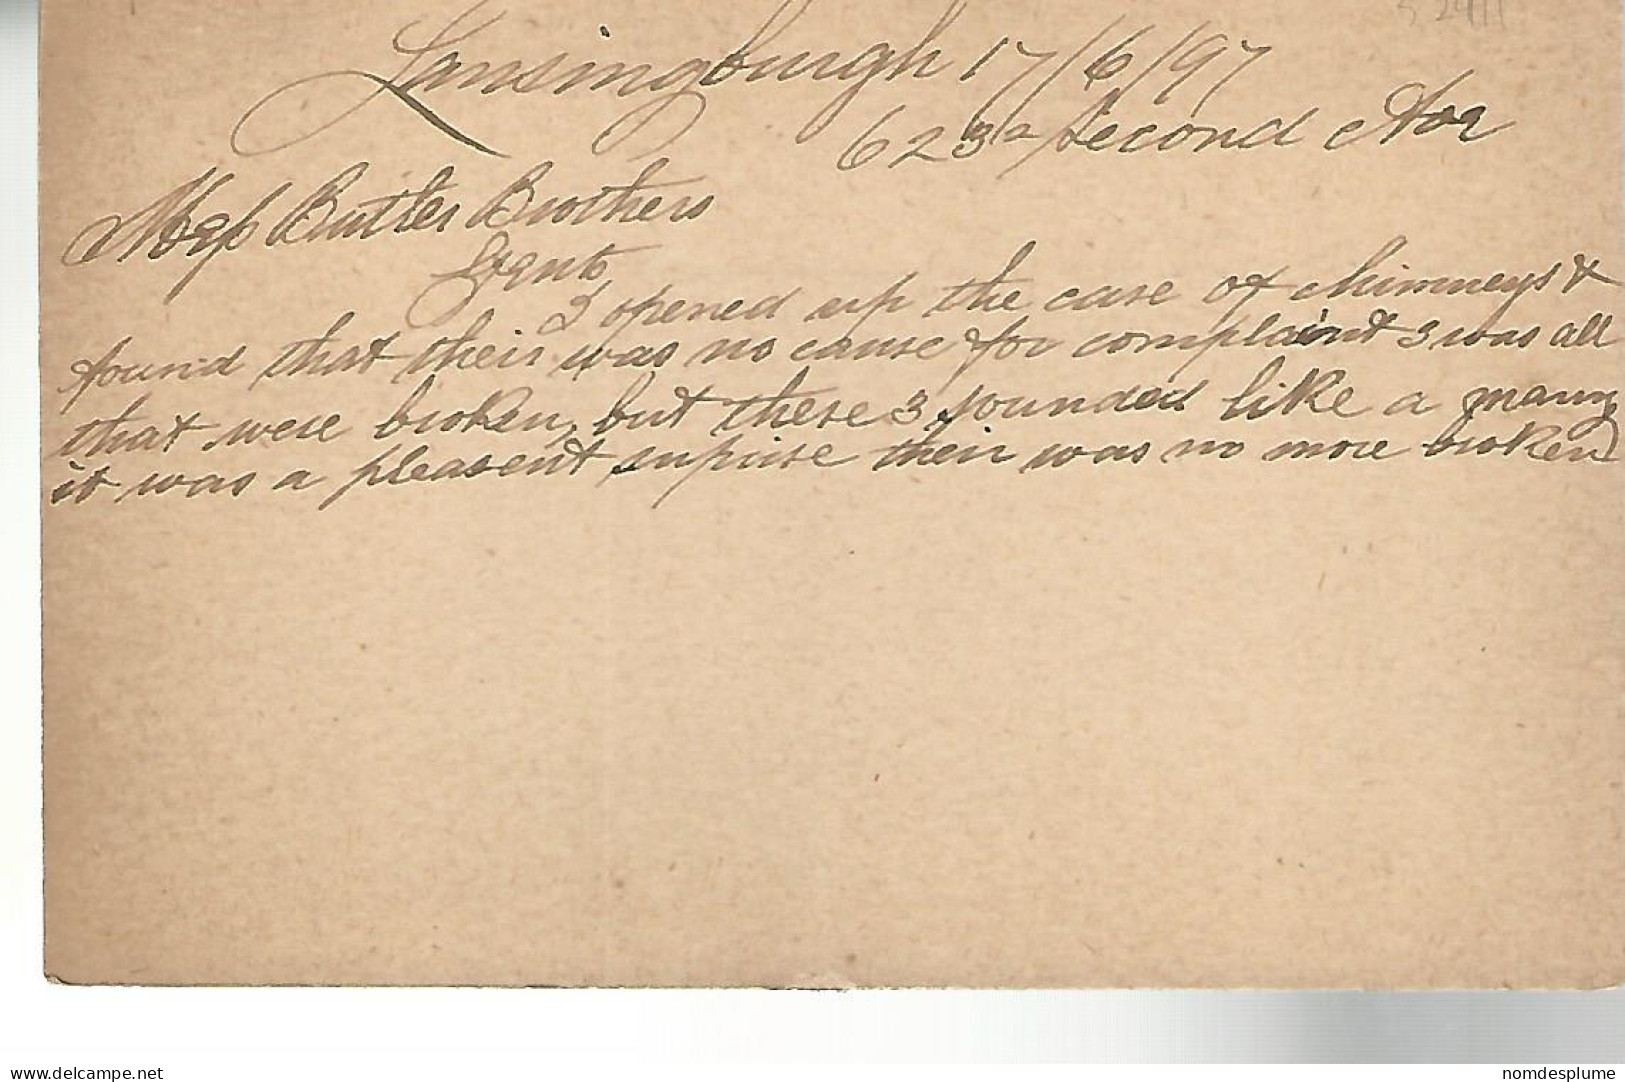 Lansingburgh 17/6/97
623 Second Ave
Mess Butler Brothers
Gents
I opened up the case of chimneys &
found that their was no cause for complaint 3 was all
that were broken, but these 3 sounded like a many
it was a pleasent supirse their was no more broken
delcampe.net
nomdesplume